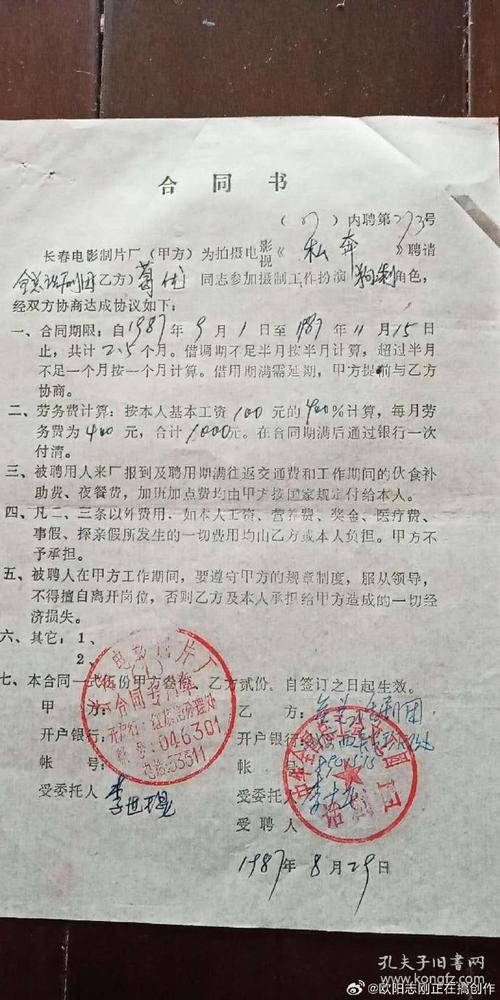 合同书
(87)内聘第273号
长春电影制片厂(甲方)为拍摄电影视《私奔》聘请
全总话剧团(乙方)葛优同志参加摄制工作扮演狗剩角色,
经双方协商达成协议如下:
一、合同期限:自1987年9月1日至1987年11月15日
止,共计2.5个月。借调期不足半月按半月计算,超过半月
不足一个月按一个月计算。借用期满需延期,甲方提前与乙方
协商。
二、劳务费计算:按本人基本工资100元的400%计算,每月劳
务费为400元,合计1000元。在合同期满后通过银行一次
付清。
三、被聘用人来厂报到及聘用期满往返交通费和工作期间的伙食补
助费、夜餐费,加班加点费均由甲方按国家规定付给本人。
四、凡二、三条以外费用,如本人工资、营养费、奖金、医疗费、
事假、探亲假所发生的一切费用均由乙方或本人负担。甲方不
予承担。
五、被聘人在甲方工作期间,要遵守甲方的规章制度,服从领导,
不得擅自离开岗位,否则乙方及本人承担给甲方造成的一切经
济损失。
六、其它:1、
2、
七、本合同一式伍份甲方叁份,乙方贰份,自签订之日起生效。
甲方:
乙方:全总话剧团
开户银行:
开户银行:
帐号:
帐号:
受委托人
受委托人
受聘人
1987年8月29日
电影制片厂
合同专用章
开户行:红旗街办理处
帐号:046301
电话:53311
中华全国总工会
话剧团
孔夫子旧书网
www.kongfz.com
@欧阳志刚正在搞创作